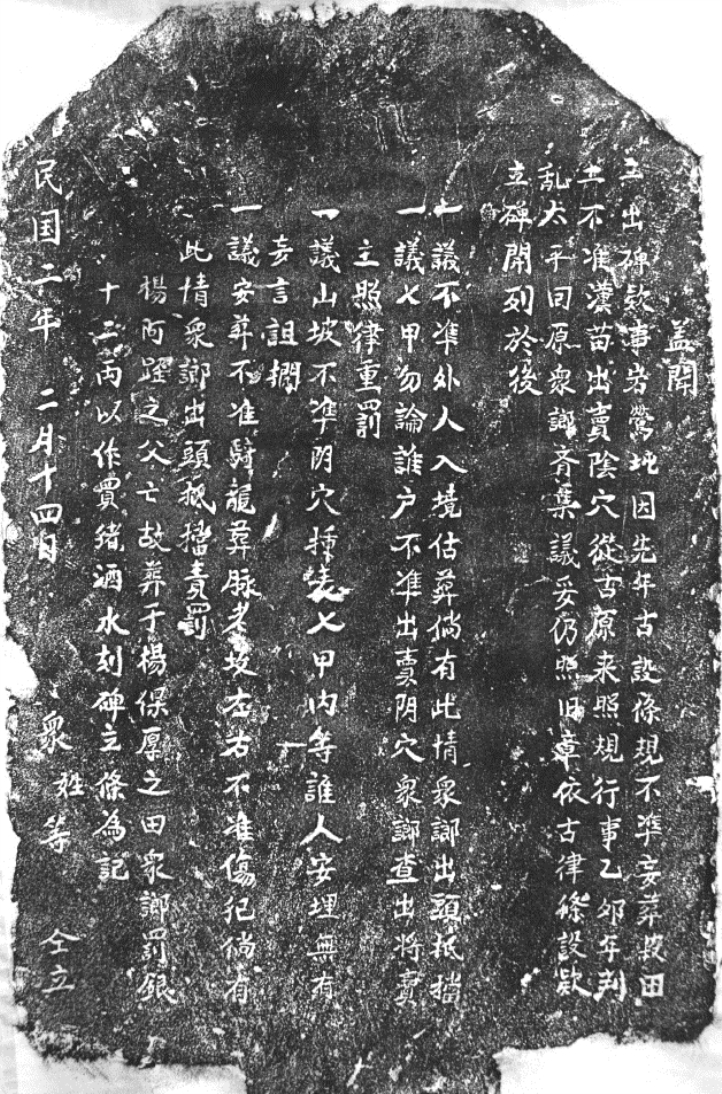 盖聞
立出碑欵事岩鶯坉因先年古設條規不準妄葬毀田
土不准漢苗出賣陰穴從古原来照規行事乙夘年判
乱太平囬原衆鄉齐集議妥仍照旧章依古律條設欵
立碑開列於後
一議不凖外人入境估葬倘有此情衆鄉出頭抵擋
一議乂甲勿論誰户不凖出賣阴穴衆鄉查出将賣
主照律重罰
一議山坡不凖阴穴乂甲内等誰人安埋無有
妄言詛攔
一議安葬不准騎龍葬脉老坟左右不准傷犯倘有
此情衆鄉出頭抵擋責罰
楊阿之父亡故葬于楊保厚之田衆鄉罰銀
十二両以作買猪酒水刻碑立條為記
民国二年 二月十四日 衆姓等 仝立